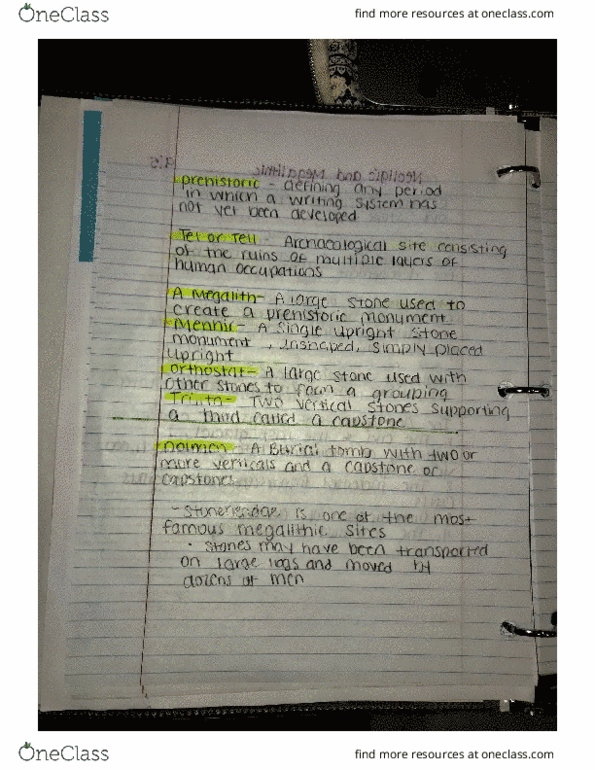 OneClass
find more resources at oneclass.com
Neolithic and Megalithic
prehistoric - defining any period
in which a writing system has
not yet been developed
Tel or Tell - Archaeological site consisting
of the ruins of multiple layers of
human occupations
A Megalith - A large stone used to
create a prehistoric monument
Menhir - A single upright stone
monument, unshaped, simply placed
upright
Orthostat - A large stone used with
other stones to form a grouping
- Two vertical stones supporting
a third called a capstone
Dolmen - A Burial tomb with two or
more verticals and a capstone or
capstones
- Stonehenge is one of the most
famous megalithic sites
• Stones may have been transported
on large logs and moved by
dozens of men
OneClass
find more resources at oneclass.com